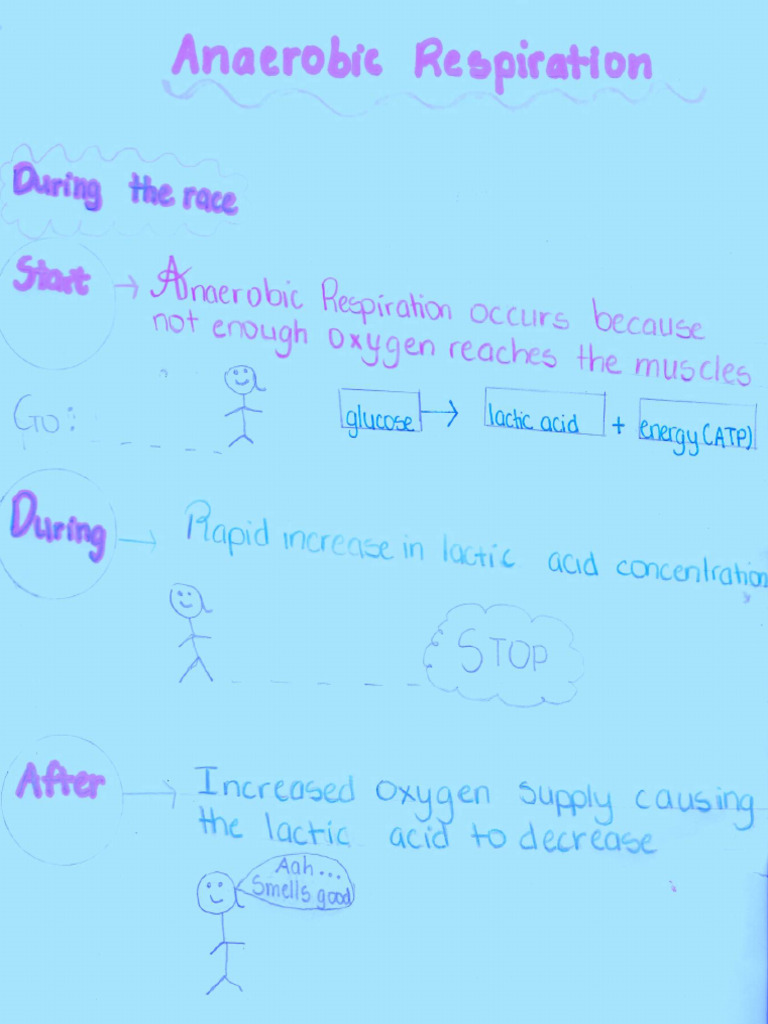 Anaerobic Respiration
During the race
Start → Anaerobic Respiration occurs because
not enough oxygen reaches the muscles
Go:
glucose → lactic acid + energy (ATP)
During → Rapid increase in lactic acid concentration
STOP
After → Increased oxygen supply causing
the lactic acid to decrease
Aah...
Smells good